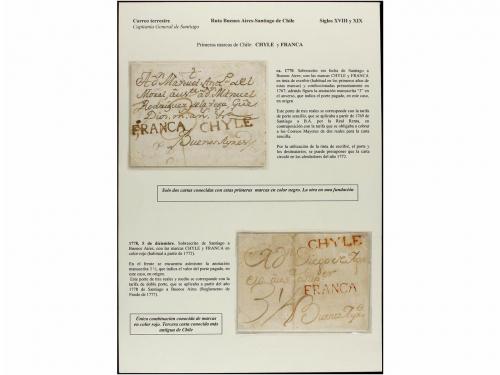 Correo terrestre Ruta Buenos Aires-Santiago de Chile Siglos XVIII y XIX
Capitanía General de Santiago
Primeras marcas de Chile: CHYLE y FRANCA
ca. 1770. Sobrescrito sin fecha de Santiago a
Buenos Aires, con las marcas CHYLE y FRANCA
en tinta de escribir (habitual en los primeros años de
estas marcas) y confeccionadas presuntamente en
1767. además figura la anotación manuscrita "3" en
el anverso, que indica el porte pagado, en este caso,
en origen.
Este porte de tres reales se corresponde con la tarifa
de porte sencillo, que se aplicaba a partir de 1769 de
Santiago a B.A. por la Real Renta, en
contraposición con la tarifa que se obligaba a cobrar
a los Correos Mayores de dos reales para la carta
sencilla.
Por la utilización de la tinta de escribir, el porte y
los destinatarios, se puede presuponer que la carta
circuló en los alrededores del año 1772.
FRANCA CHYLE
Buenos Ayres
Solo dos cartas conocidas con estas primeras marcas en color negro. La otra en una fundación
1778, 5 de diciembre. Sobrescrito de Santiago a
Buenos Aires, con las marcas CHYLE y FRANCA en
color rojo (habitual a partir de 1777).
En el frente se encuentra asimismo la anotación
manuscrita 3 ½, que indica el valor del porte pagado, en
este caso, en origen.
Este porte de tres reales y medio se corresponde con la
tarifa de doble porte, que se aplicaba a partir del año
1778 de Santiago a Buenos Aires (Reglamento de
Pando de 1777).
CHYLE
FRANCA
3½
Buenos Ays
Única combinación conocida de marcas
en color rojo. Tercera carta conocida más
antigua de Chile